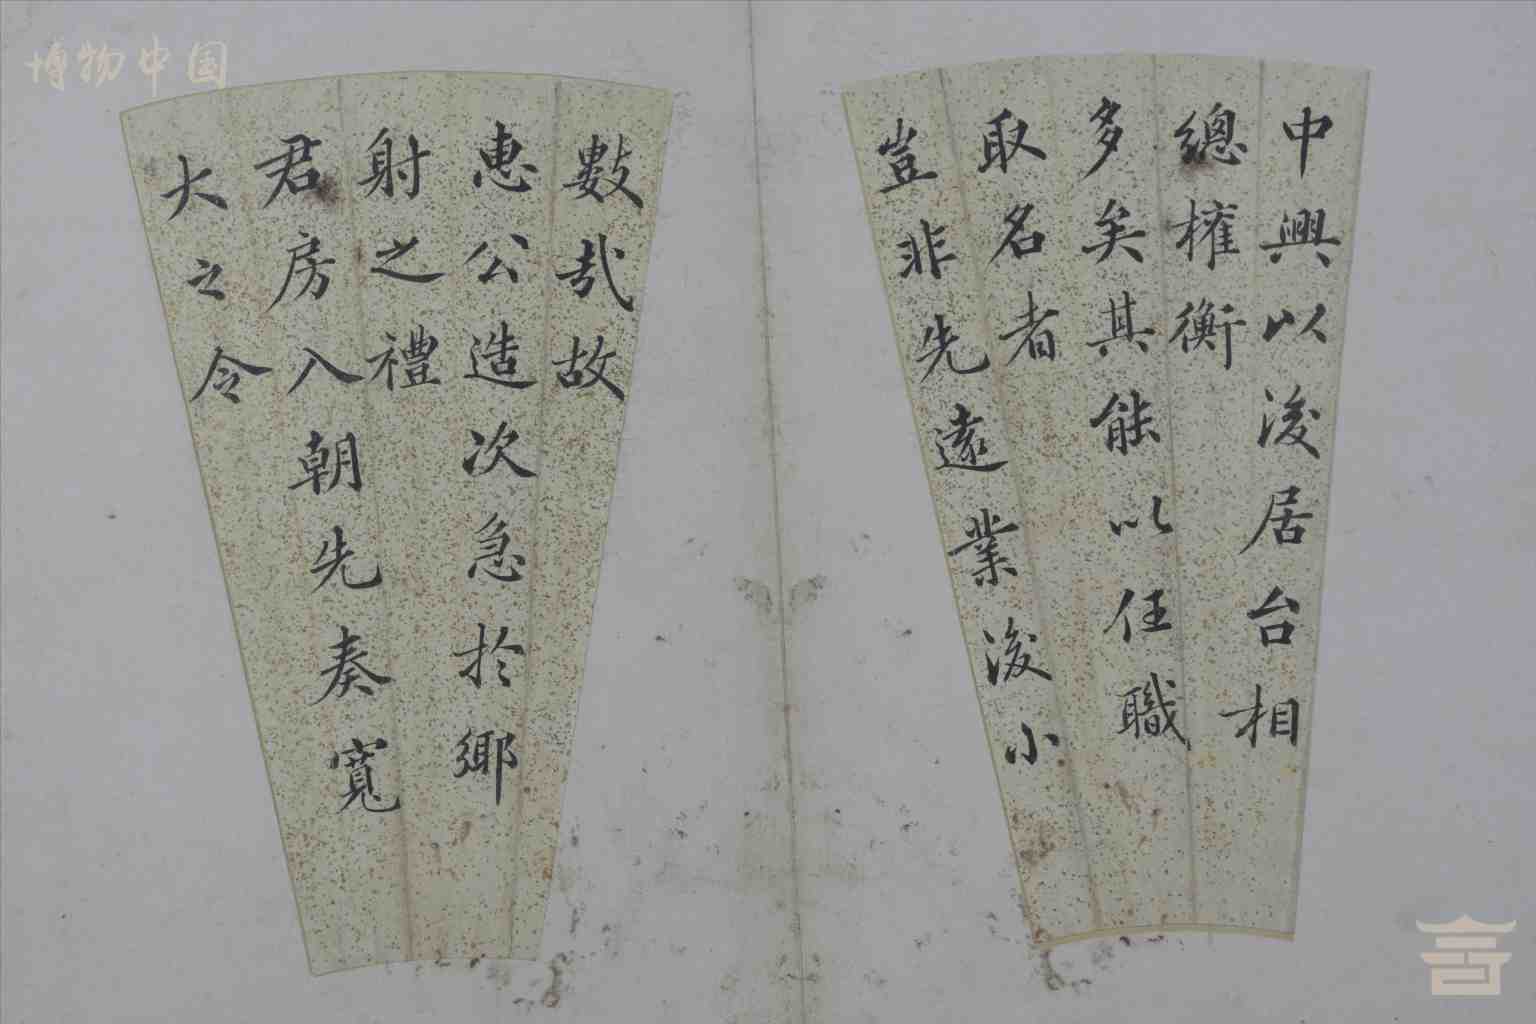 博物中国
中興以後居台相
總權衡
多矣其能以任職
取名者
豈非先遠業後小
數哉故
惠公造次急於鄉
射之禮
君房入朝先奏寬
大之令